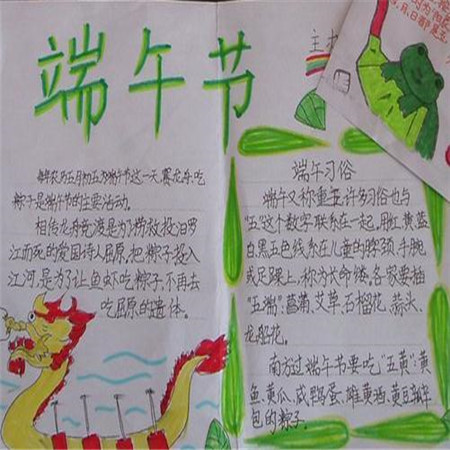 端午节
主
月,日都是五
农历五月初五为端午节这一天,赛龙舟、吃
粽子是端午节的主要活动。
相传龙舟竞渡是为了捞救投汨罗
江而死的爱国诗人屈原,把粽子投入
江河,是为了让鱼虾吃粽子,不再去
吃屈原的遗体。
端午习俗
端午又称重五,许多习俗也与
“五”这个数字联系在一起,用红、黄、蓝
白、黑五色线系在儿童的脖颈、手腕
或足踝上,称为长命缕,各家要插
“五端”:菖蒲、艾草、石榴花、蒜头、
龙船花。
南方过端午节要吃“五黄”:黄
鱼、黄瓜、咸鸭蛋、雄黄酒、黄豆瓣
包的粽子.